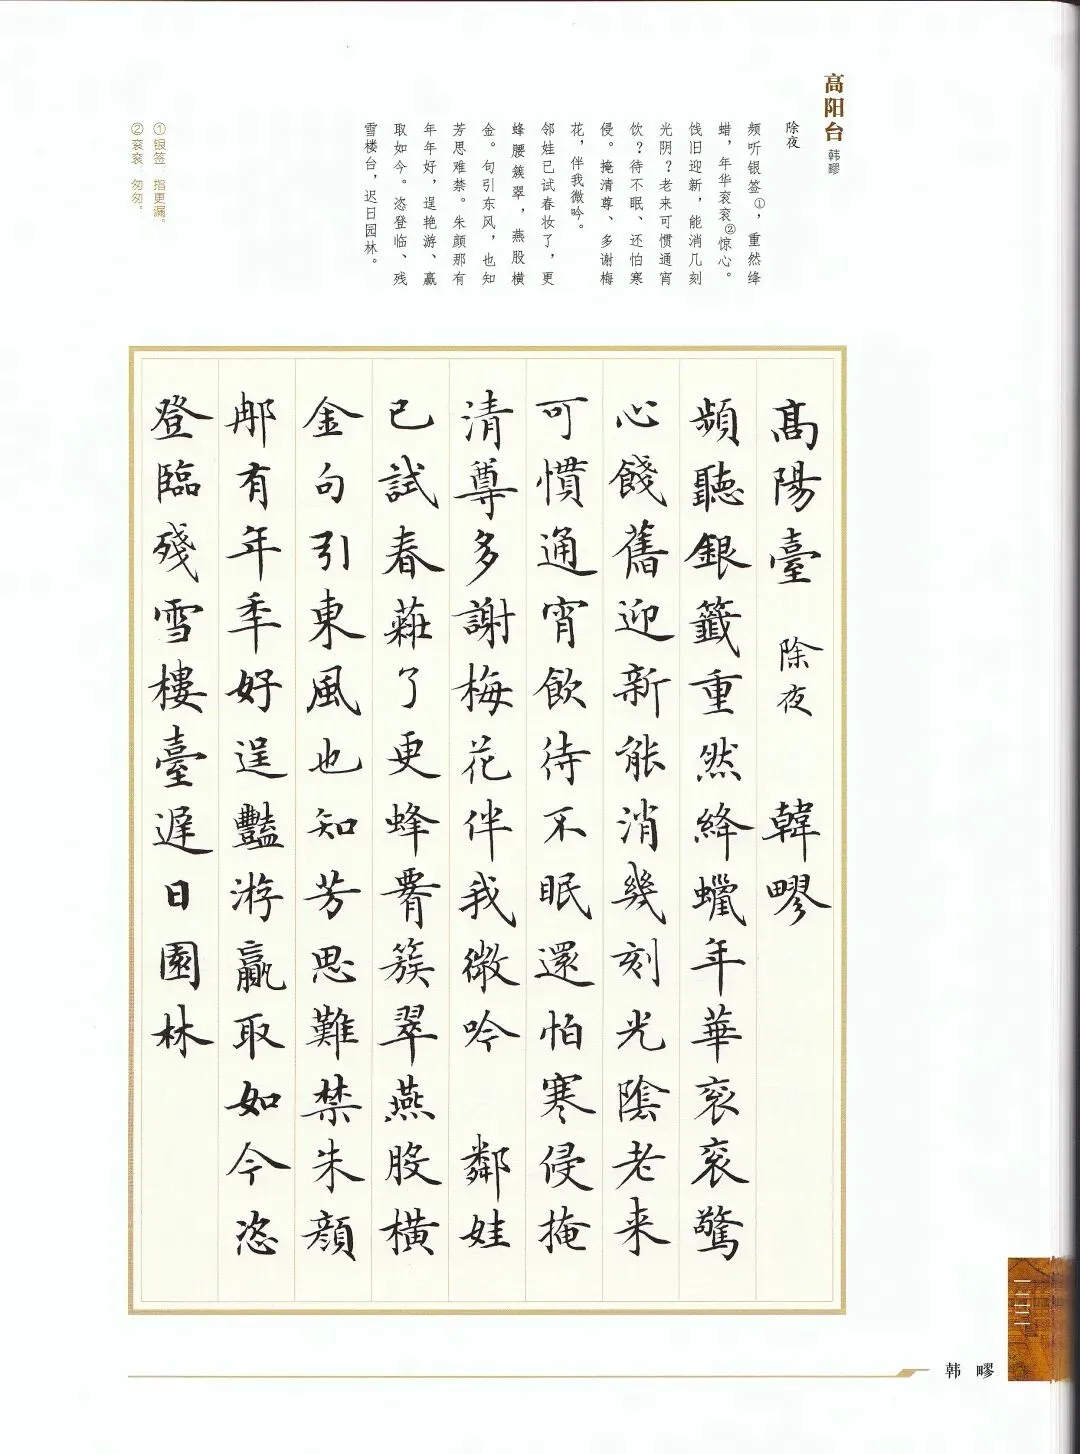 高阳台 韩疁
除夜
频听银签①，重然绛
蜡，年华衮衮②惊心。
饯旧迎新，能消几刻
光阴？老来可惯通宵
饮？待不眠、还怕寒
侵。掩清尊、多谢梅
花，伴我微吟。
邻娃已试春妆了，更
蜂腰簇翠，燕股横
金。句引东风，也知
芳思难禁。朱颜那有
年年好，逞艳游、赢
取如今。恣登临、残
雪楼台，迟日园林。
①银签：指更漏。
②衮衮：匆匆。
高陽臺 除夜 韓疁
頻聽銀籤重然絳蠟年華衮衮驚
心餞舊迎新能消幾刻光陰老来
可慣通宵飲待不眠還怕寒侵掩
清尊多謝梅花伴我微吟 鄰娃
已試春蘀了更蜂腰簇翠燕股橫
金句引東風也知芳思難禁朱顏
那有年年好逞豔游贏取如今恣
登臨殘雪樓臺遲日園林
韩疁
一二三